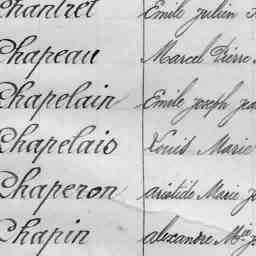 Chantrel Emile Julien
Chapeau Marcel Pierre
Chapelain Emile Joseph Jea
Chapelais Louis Marie
Chaperon aristide Marie J
Chapin alexandre Mie J